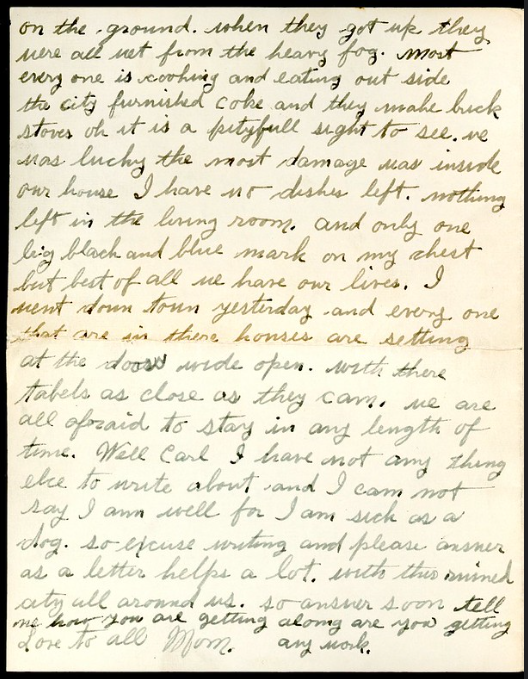 on the ground. when they got up they
were all wet from the heavy fog. Most
every one is cooking and eating out side
the city furnished coke and they make brick
stoves oh it is a pityfull sight to see. we
was lucky the most damage was inside
our house I have no dishes left. nothing
left in the living room. and only one
big black and blue mark on my chest
but best of all we have our lives. I
went down town yesterday and every one
that are in there houses are setting
at the doors wide open. with there
tabels as close as they can. we are
all afraid to stay in any length of
time. Well Carl I have not any thing
else to write about and I can not
say I am well for I am sick as a
dog. so excuse writing and please answer
as a letter helps a lot. with this ruined
city all around us. so answer soon tell
me how you are getting along are you getting
Love to all Mom. any work.